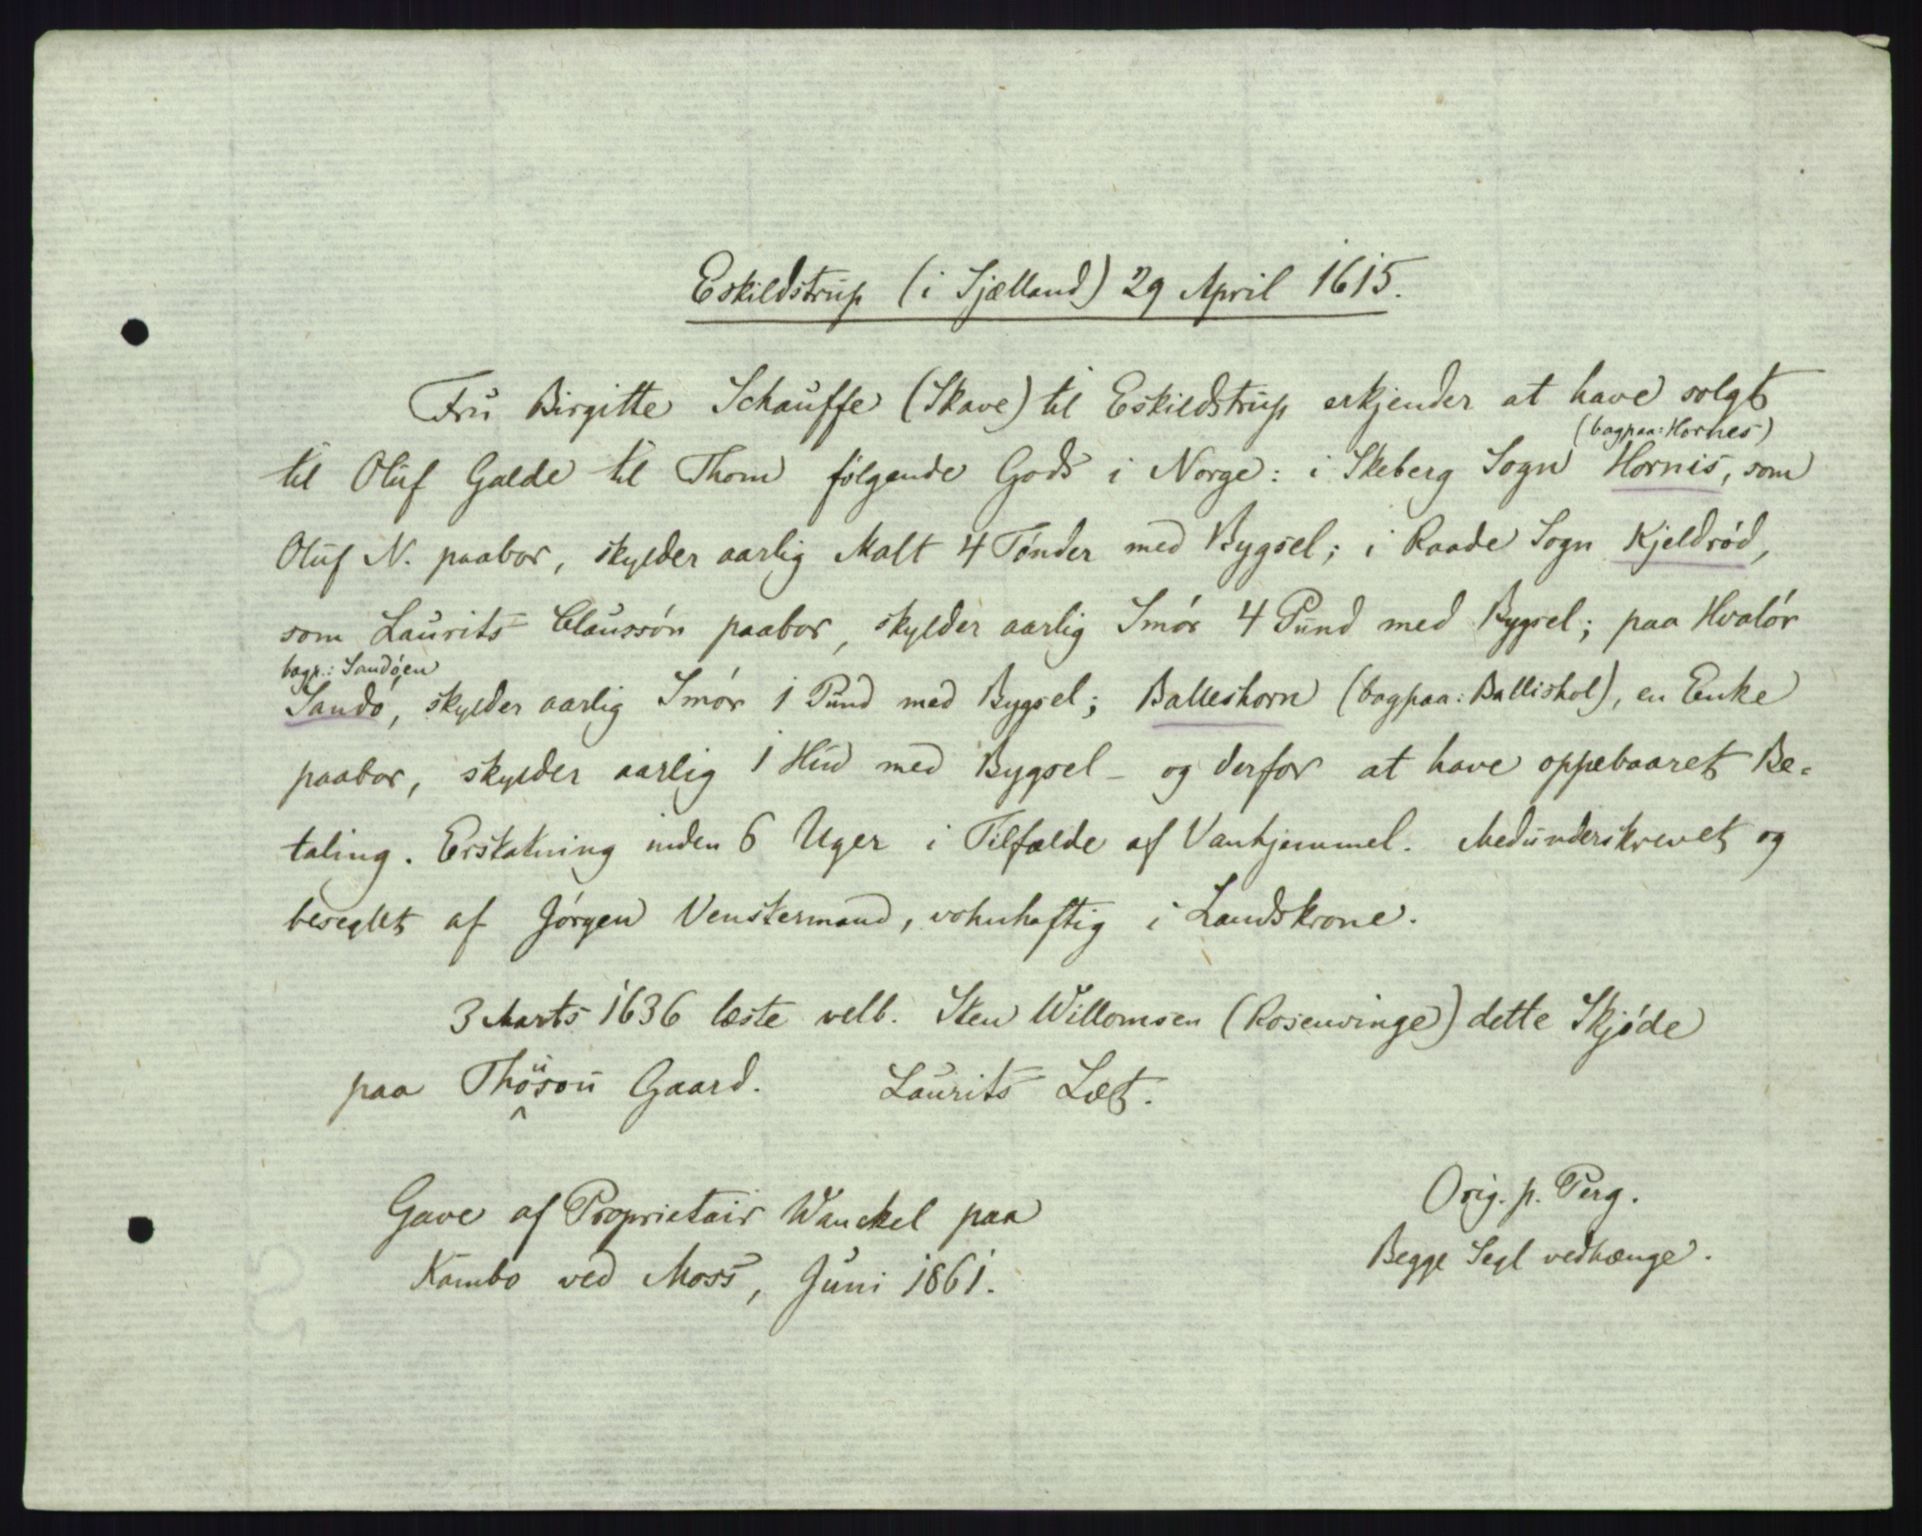 Eskildstrup (i Sjælland) 29 April 1615.
Fru Birgitte Schauffe (Skave) til Eskildstrup erkjender at have solgt
(bagpaa: Hornes)
til Oluf Galde til Thom følgende Gods i Norge: i Skeberg Sogn Hornis, som
Oluf N. paabor, skylder aarlig Malt 4 Tønder med Bygsel; i Raade Sogn Kjeldrød,
som Laurits Claussøn paabor, skylder aarlig Smør 4 Pund med Bygsel; paa Hvalør
bagp.: Sandøen
Sandø, skylder aarlig Smør 1 Pund med Bygsel; Balleshorn (bagpaa: Ballishol), en Enke
paabor, skylder aarlig 1 Hud med Bygsel – og derfor at have oppebaaret Be-
taling. Erstatning inden 6 Uger i Tilfælde af Vanhjemmel. Medunderskrevet og
beseglet af Jørgen Venstermand, vohnhaftig i Landskrone.
3 Marts 1636 læste velb. Sten Willomsen (Rosenvinge) dette Skjøde
paa Thøüson Gaard. Laurits Læt.
Gave af Proprietair Wanckel paa
Kambo ved Moss, Juni 1861.
Orig. p. Perg.
Begge Segl vedhænge.